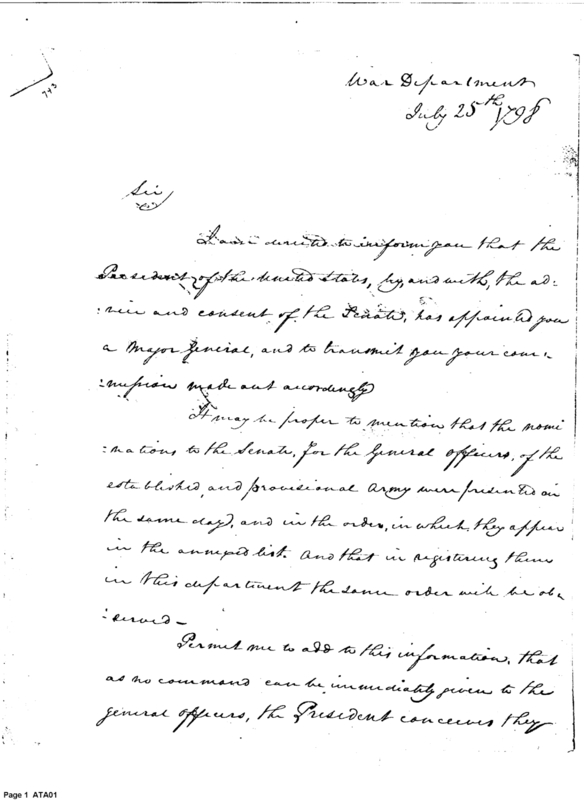 743
War Department
July 25th 1798
Sir
I am directed to inform you that the
President of the United States, by, and with, the ad:
:vice and consent of the Senate, has appointed you
a Major General, and to transmit you your com:
:mission made out accordingly
It may be proper to mention that the nomi
:nations to the Senate, for the General Officers, of the
established, and provisional Army were presented on
the same day, and in the order, in which, they appear
in the annexed list. And that in registering them
in this department the same order will be ob:
:served –
Permit me to add to this information, that
as no command can be immediately given to the
general officers, the President conceives they
Page 1 ATA01